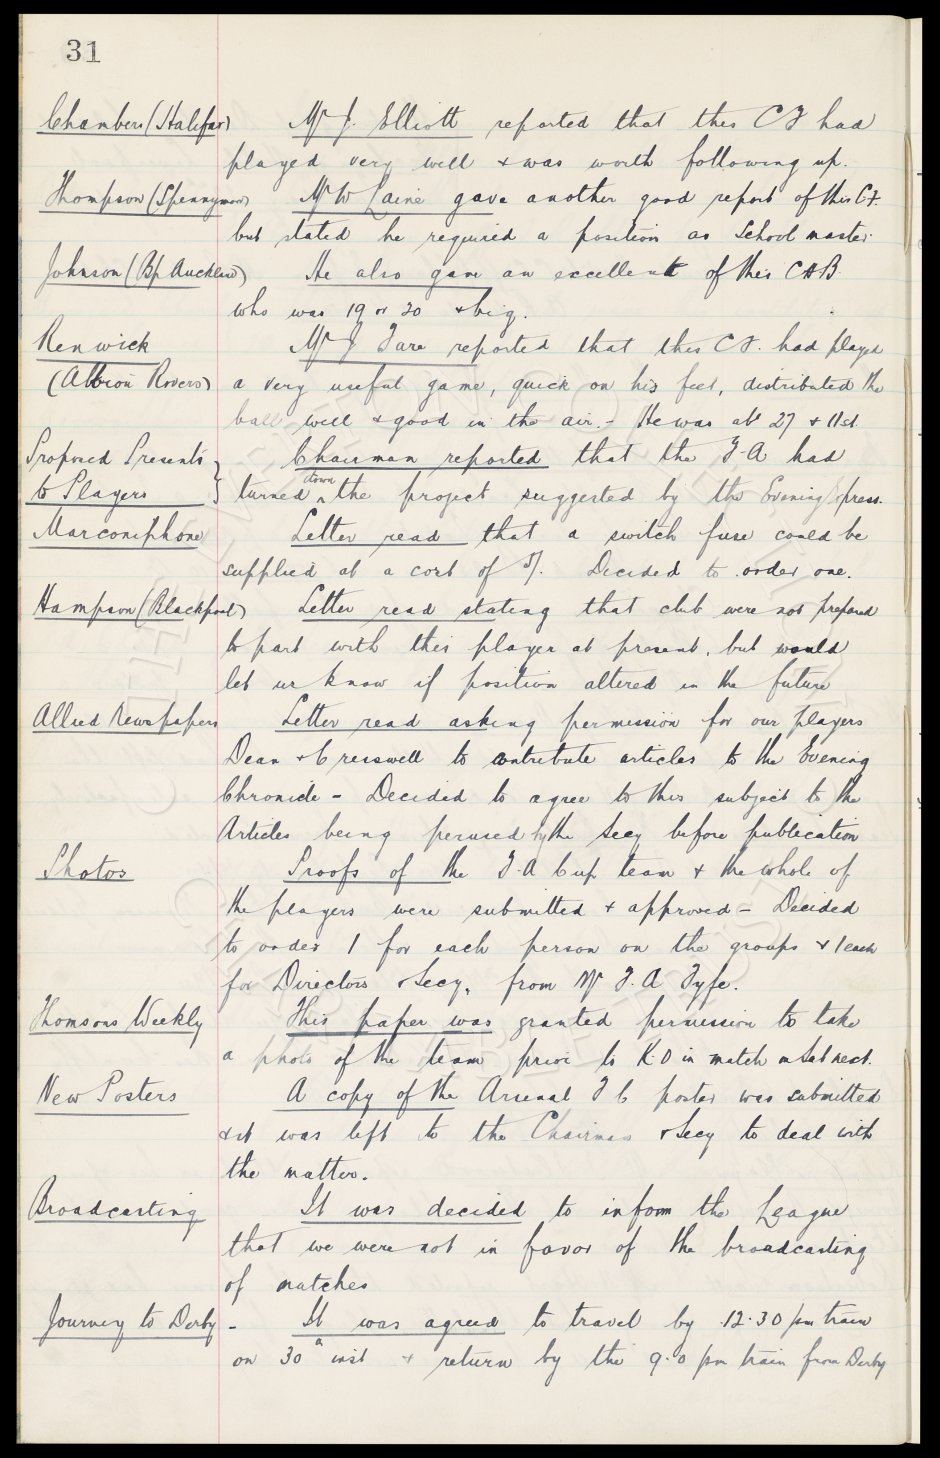 31
Chambers (Halifax) Mr J. Elliott reported that this CF had
played very well & was worth following up.
Thompson (Spennymoor) Mr W Laine gave another good report of this C.F.
but stated he required a position as School master.
Johnson (Bp Auckland) He also gave an excellent of this CHB
who was 19 or 20 & big.
Renwick Mr J Fare reported that this C.F. had played
(Albion Rovers) a very useful game, quick on his feet, distributed the
ball well & good in the air. - He was abt 27 & 11st
Proposed Presents Chairman reported that the F.A had
to Players turned down the project suggested by the Evening Express.
Marconiphone Letter read that a switch fuse could be
supplied at a cost of 5/. Decided to order one.
Hampson (Blackpool) Letter read stating that club were not prepared
to part with this player at present, but would
let us know if position altered in the future
Allied Newspapers Letter read asking permission for our players
Dean & Cresswell to contribute articles to the Evening
Chronicle - Decided to agree to this subject to the
Articles being perused by the Secy before publication
Photos Proofs of the F.A Cup team & the whole of
the players were submitted & approved - Decided
to order 1 for each person on the groups & 1 each
for Directors & Secy, from Mr F. A Fyfe.
Thomsons Weekly This paper was granted permission to take
a photo of the team prior to K.O in match on Sat next.
New Posters A copy of the Arsenal F C poster was submitted
& it was left to the Chairman & Secy to deal with
the matter.
Broadcasting It was decided to inform the League
that we were not in favor of the broadcasting
of matches
Journey to Derby - It was agreed to travel by 12.30 pm train
on 30th inst & return by the 9.0 pm train from Derby